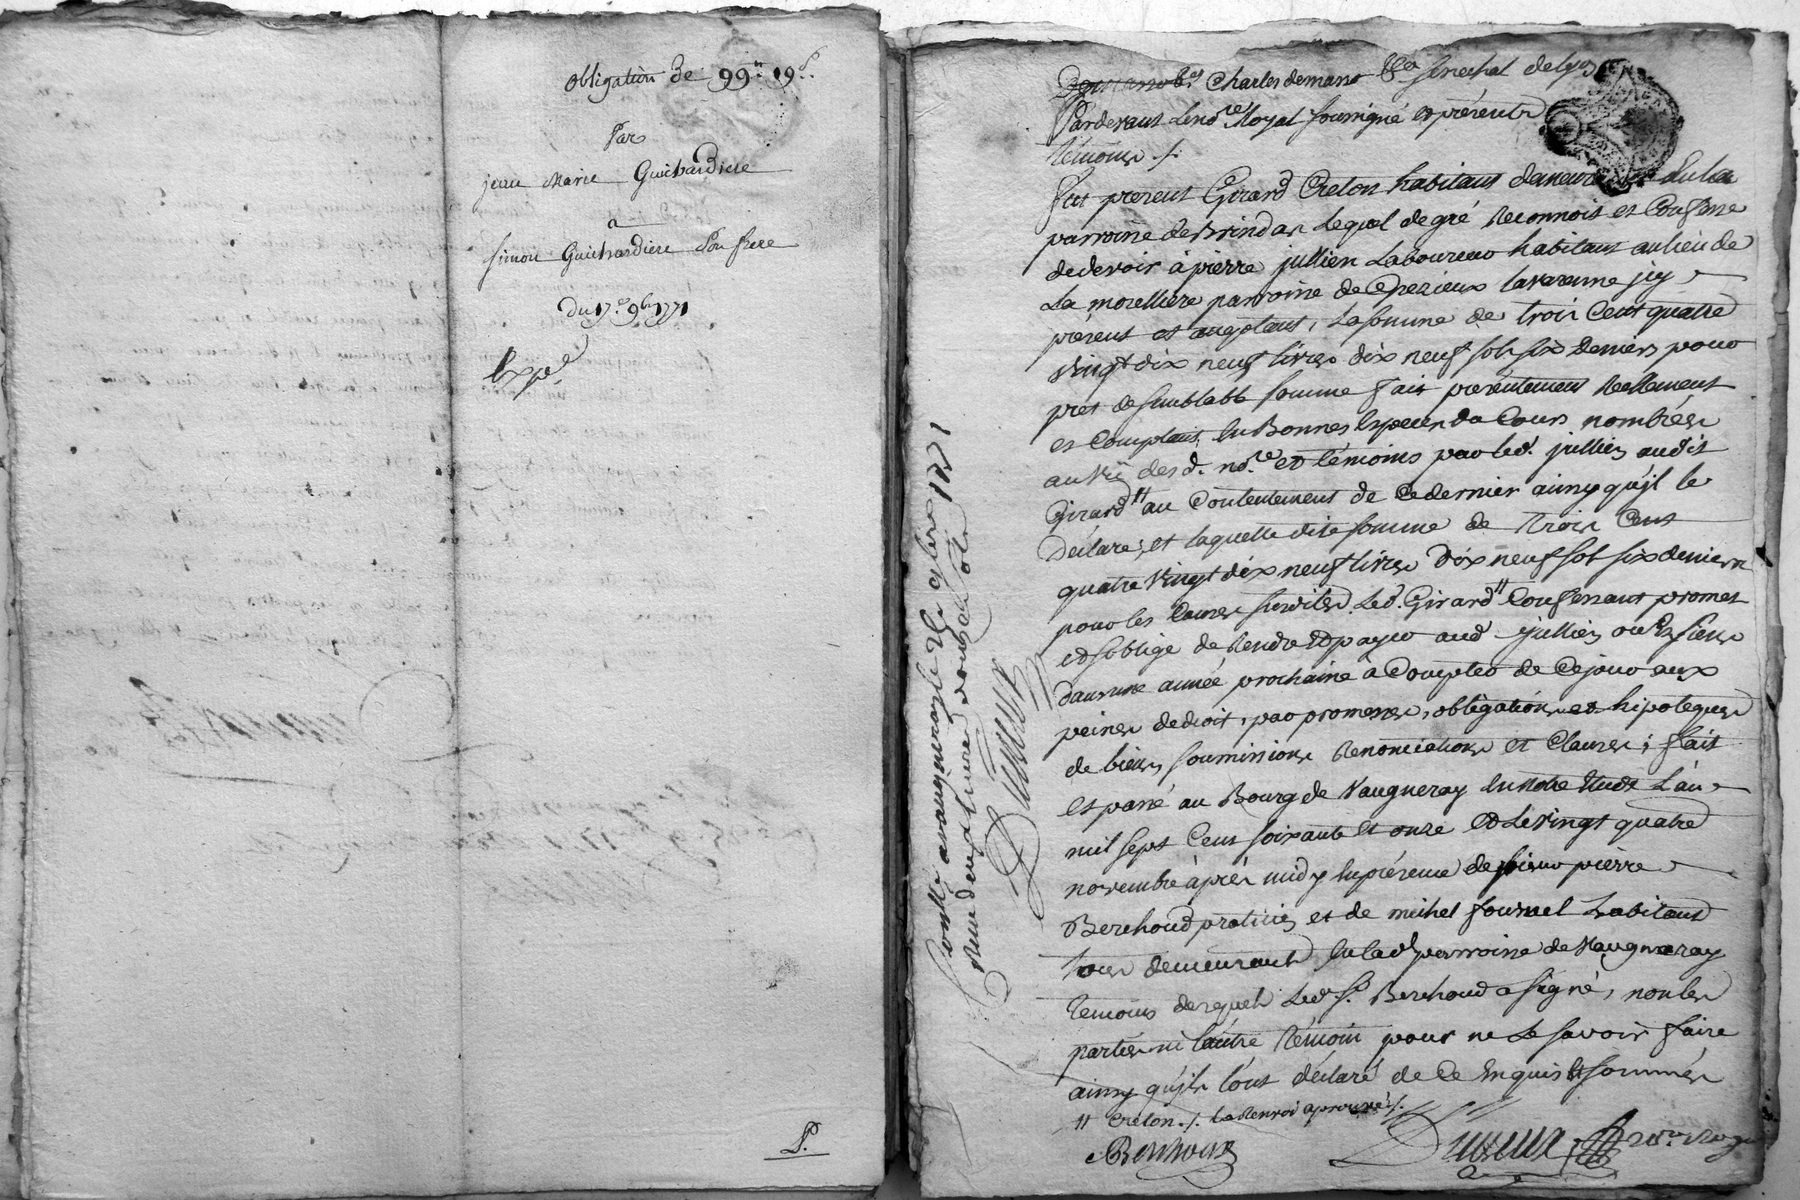 Obligation De 99# 19s.
Par
jean Marie Guichardiere
a
Simon Guichardiere Son frere
Du 17e. 9bre 1771
Expé
P.
Charles demasso sénéchal de lyon
Pardevant le no.re Royal soussigné et présents
témoins ./.
fut present Girard Crelon habitant demeurant en la
parroisse de Brindas lequel de gré reconnoit et Confesse
de devoir à pierre jullien Laboureur habitant au lieu de
La morelliere parroisse de Grezieux lavarenne jcy
présent et acceptant, La somme de trois Cent quatre
vingt dix neuf livres dix neuf sols six deniers pour
pret de semblable somme fait presentement reellement
et Comptant en Bonnes Especes du Cours nombrées
au vû des d. no.re et témoins par led. jullien audit
Girard # au Contentement de Ce dernier ainsy qu'jl le
déclare, et laquelle dite somme de trois Cent
quatre vingt dix neuf livres dix neuf sols six deniers
pour les Causes susdites Led. Girard # Confessant promet
et s'oblige de rendre et payer aud. jullien ou És siens
dans une année prochaine à Compter de Ce jour aux
peines de droit, par promesses, obligations et hipoteques
de biens, soumissions renonciations et Clauses ; fait
et passé au Bourg de Vaugneray En notre Etude L'an
mil sept Cent soixante et onze et Le vingt quatre
novembre après midy En présence de sieur pierre
Berchoud praticien et de michel fournel habitant
tous demeurants En lad. parroisse de Vaugneray
temoins desquels Led. s.r Berchoud a signé, non les
parties ni l'autre témoin pour ne Le savoir faire
ainsy qu'jls l'ont déclaré de Ce Enquis et sommés
# Crelon ./. Le renvoi aprouvé ./.
Berchoud
Contlé à vaugneray le 9bre 1771